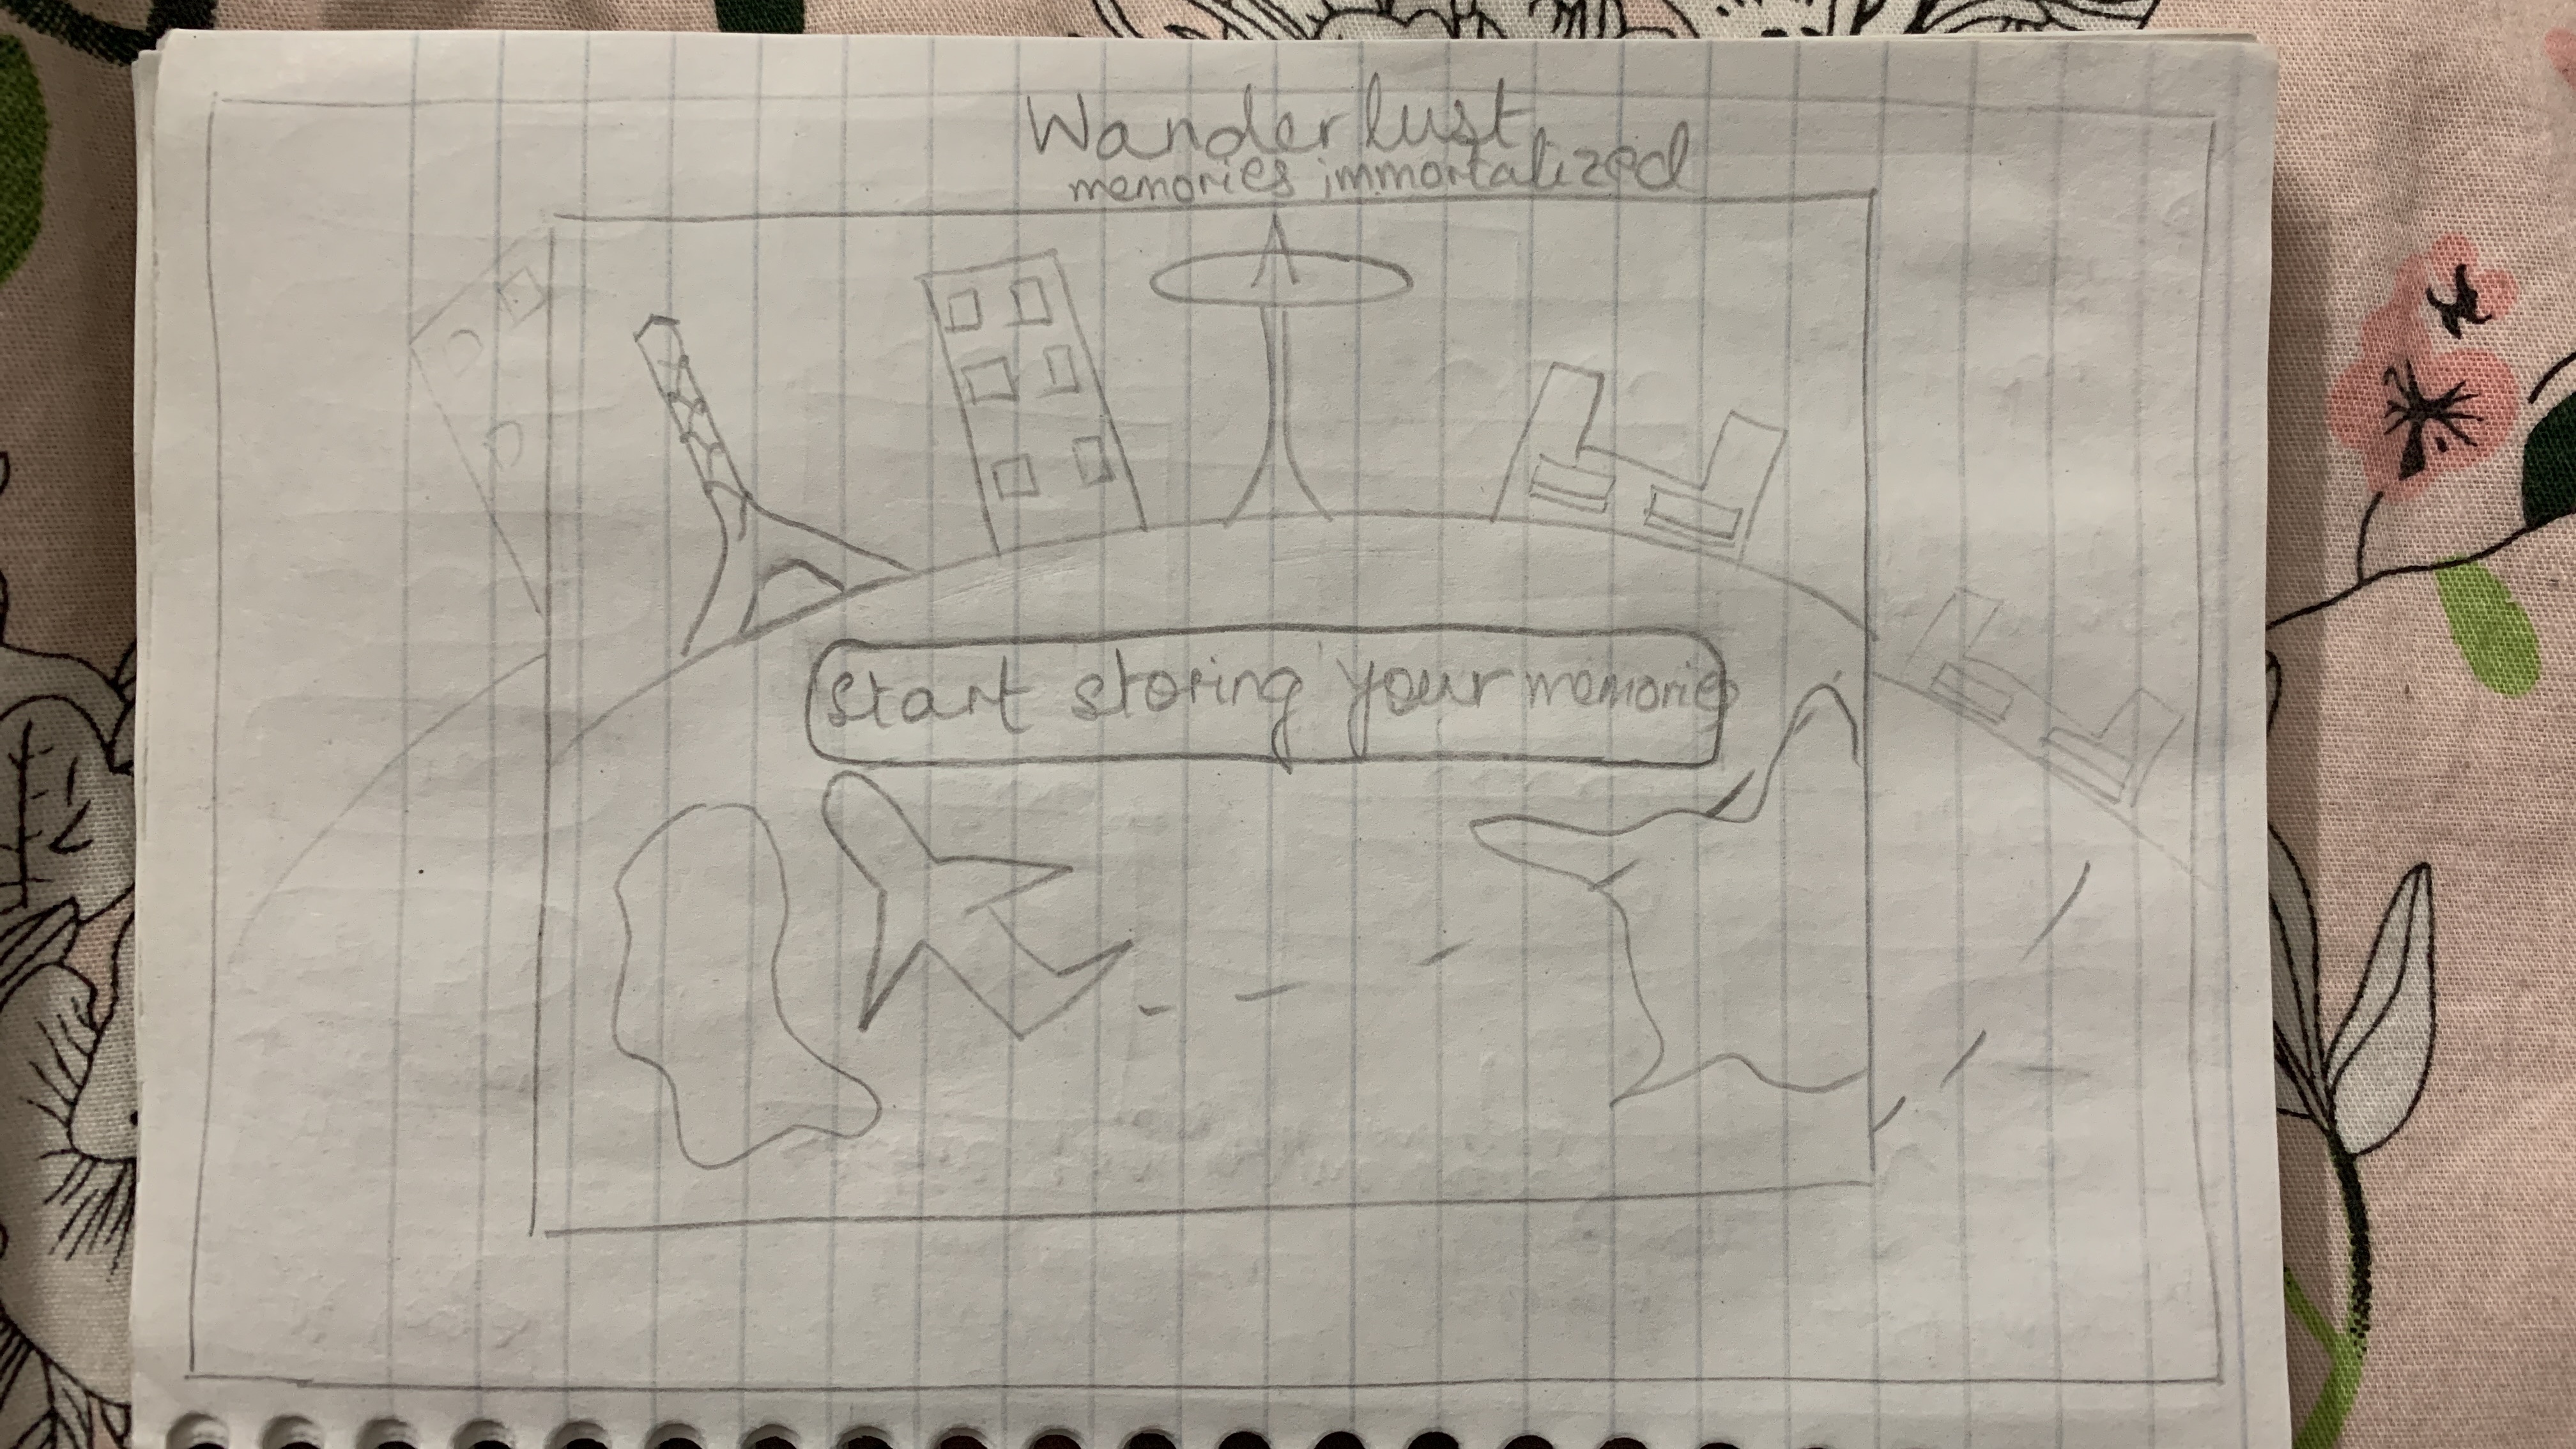 Wanderlust
memories immortalized
Start storing your memories